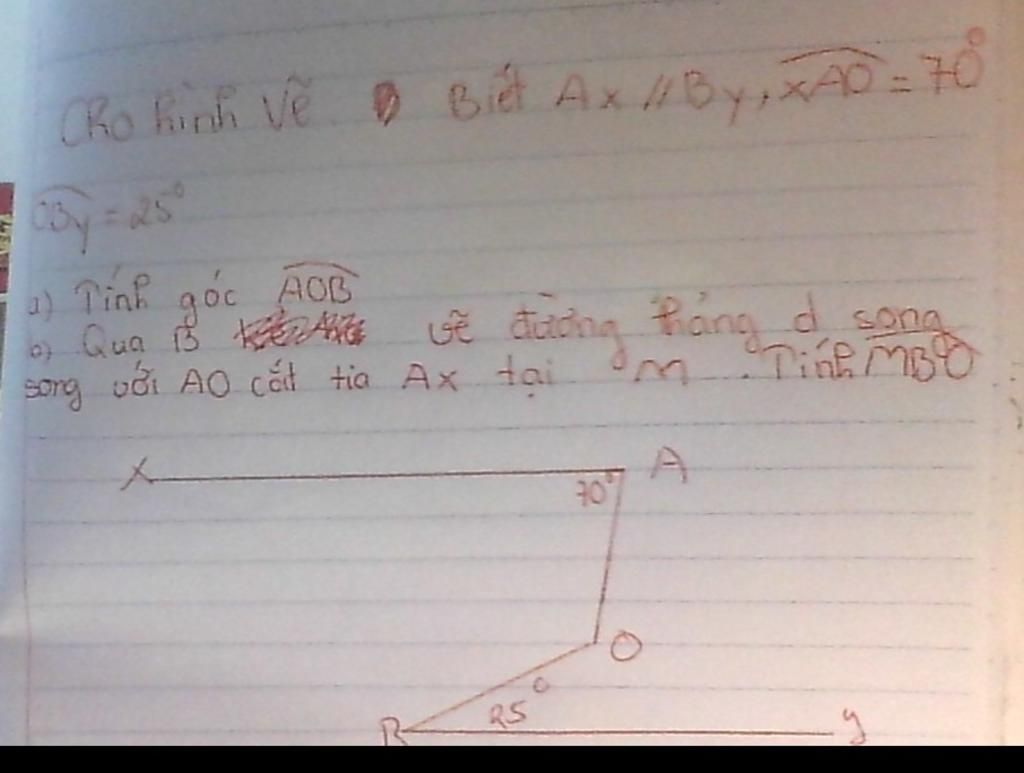 Cho hình vẽ Biết Ax // By, xAO = 70°
OBy = 25°
a) Tính góc AOB
b) Qua B vẽ đường thẳng d song
song với AO cắt tia Ax tại m . Tính MBO
x A
70°
O
25°
B y